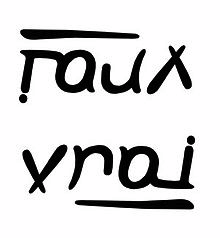 faux
vrai